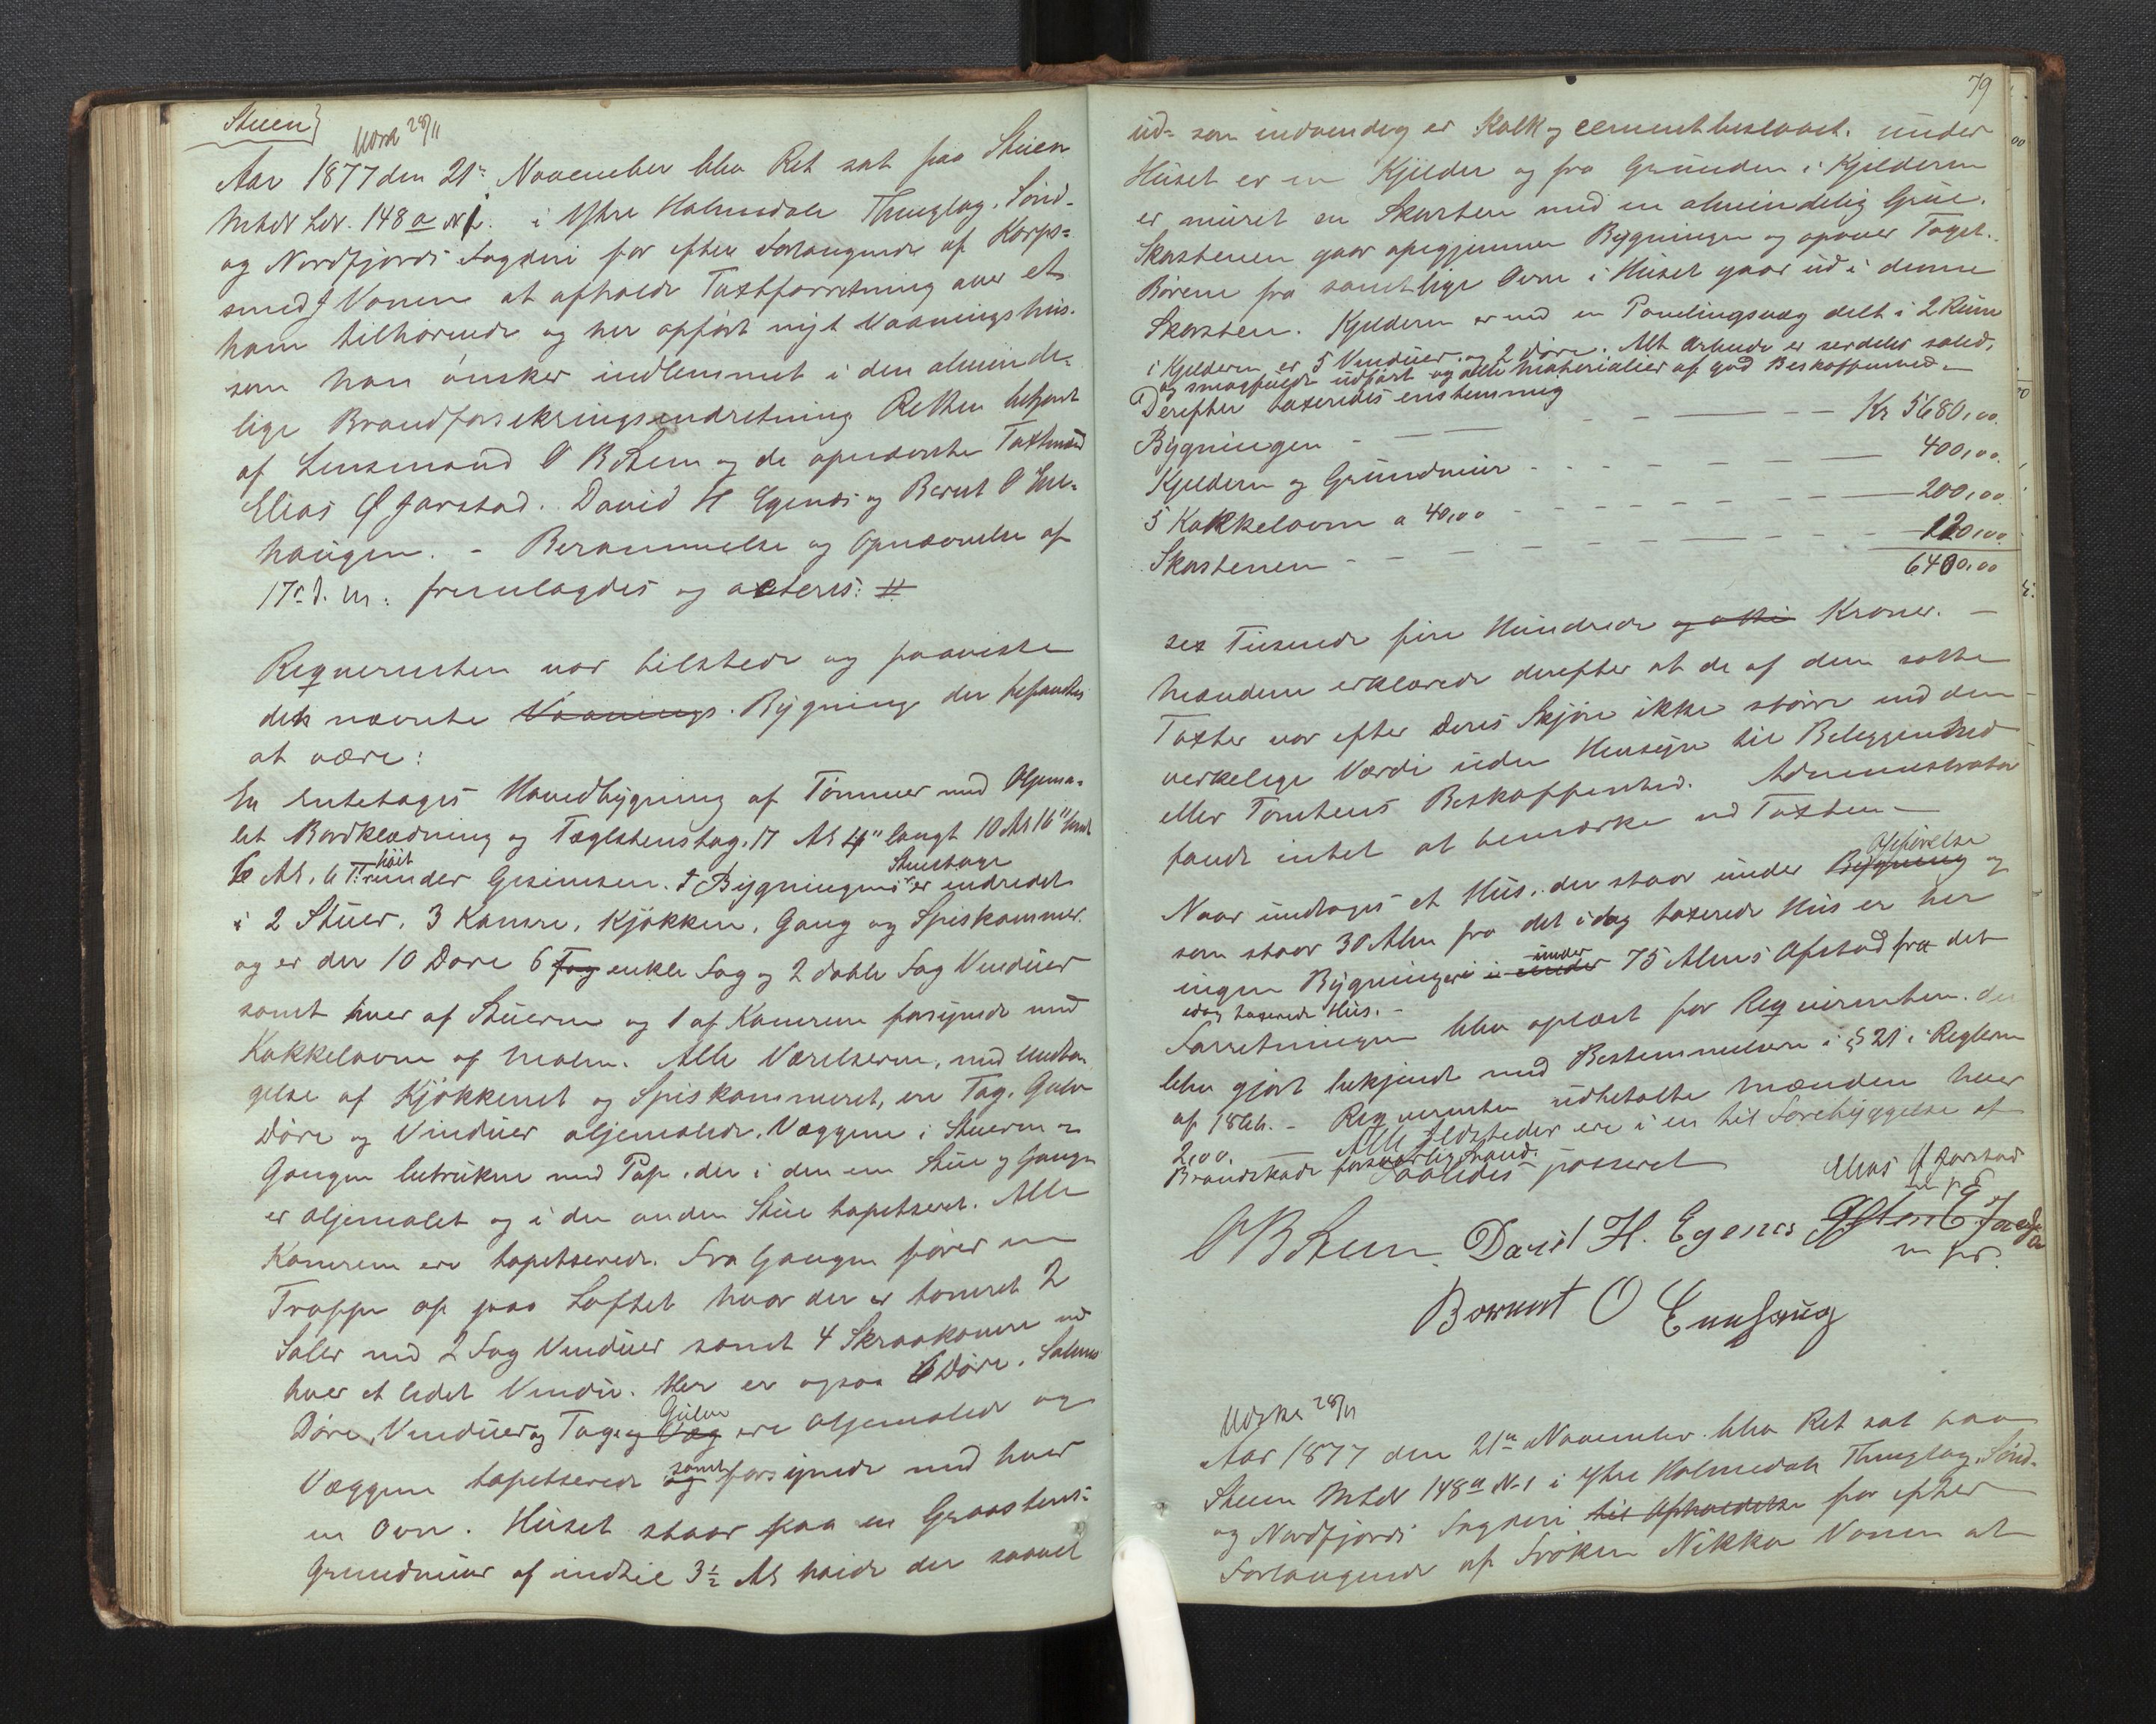 Steen}
Udsk 28/11
Aar 1877 den 21de November blev Ret sat paa Steen
Mtrk Lbr. 148a No 1. i Yttre Holmedals Thinglag, Sönd-
og Nordfjords Fogderi for efter Forlangende af Korps=
smed J Vonen at afholde Taxtforretning over et
ham tilhörende og her opfört nyt Vaaningshus.
som han önsker indlemmet i den alminde-
lige Brandforsikringsindretning Retten betjent
af Lensmand O B Steen og de opnævnte Taxtmænd
Elias Ø Jarstad. David H Egenes og Bernt O Ene-
haugen. - Berammelse og Opnævnelse af
17de d. M: fremlagdes og acteres: #
Reqverenten var tilstede og paaviste
den nævnte Vaanings. Bygning der befandtes
at være:
En entetages Hovedbygning af Tömmer med Oljema-
let Bordklædning og Taglstenstag. 17 Al 4" langt 10 Al 16" bredt
6 Al. 6 T. höit under Gesimsen. I Bygningens Stueetage er indredet
i 2 Stuer, 3 Kamre, Kjökken, Gang og Spiskammer.
og er der 10 Döre 6 Fag enkle Fag og 2 doble Fag Vinduer
samt hver af Stuerne og 1 af Kamrene forsynede med
Kakkelovne af Malm. Alle Værelserne, med Undta-
gelse af Kjökkenet og Spiskammeret, ere Tag, Gulv
Döre og Vinduer oljemalede. Væggene i Stuerne og
Gangen betrukne med Pap, der i den ene Stue og Gangen
er oljemalet og i den anden Stue tapetseret. Alle
Kamrene ere tapetserede. Fra Gangen förer en
Trappe op paa Loftet hvor der er tömret 2
Saler med 2 Fag Vinduer samt 4 Skraakamre med
hver et lidet Vindu. Her er ogsaa 6 Döre. Salenes
Döre, Vinduer og Tag og Væg Gulve ere Oljemalede og
Væggene tapetserede og samt forsynede med hver
en Ovn. Huset staar paa en Graastens-
Grundmuur af indtil 3½ Al höide der saavel
79
ud- som indvendig er Kalk og cementbeslaaet. Under
Huset er en Kjelder og fra Grunden i Kjelderen
er muret en Skorsten med en almindelig Grue.
Skorstenen gaar opigjennem Bygningen og opover Taget.
Rörene fra samtlige Ovne i Huset gaar ud i denne
Skorsten. Kjelderen er ved en Panelingsvæg delt i 2 Rum
i Kjelderen er 5 Vinduer og 2 Döre. Alt Arbeide er serdeles solid,
og smagfuldt udfört og alle Materialier af god Beskaffenhed. -
Derefter taxeredes enstemmig
Bygningen - - - Kr 5680,00.
Kjelderen og Grundmuur - - - 400,00.
5 Kakkelovne a 40,00 - - - 200,00
Skorstenen - - - 120,00.
6400,00
sex Tusende fire Hundrede og otti Kroner. -
Mændene erklærede derefter at de af dem satte
Taxter var efter deres Skjön ikke större end den
verkelige Værdi uden Hensyn til Beliggenhed
eller Tomtens Beskaffenhed. Administrator
fandt intet at bemærke ved Taxten. -
Naar undtages et Hus, der staar under Bygning Opförelse og
som staar 30 Alen fra det idag taxerede Hus er her
ingen Bygninger i under under 75 Alens Afstad fra det
idag taxerede Hus. -
Forretningen blev oplæst for Reqvirenten. der
blev gjort bekjendt med Bestemmelserne i § 21 i Reglerne
af 1846. - Reqverenten udbetalte Mændene hver
2,00. - Alle Ildsteder ere i en til Forebyggelse af
Brandskade forsvarlig Stand.
Saaledes passeret
Elias Ø Jarstad
m. p. P
O B Steen. David H. Egenes
m. p. P.
Bernt O Enehaug
Udskr 28/11
Aar 1877 den 21de November blev Ret sat paa
Steen Mtrk 148a No 1 i Yttre Holmedals Thinglag, Sönd-
og Nordfjords Fogderi til Afholdelse for efter
Forlangende af Fröken Nikka Vonen at